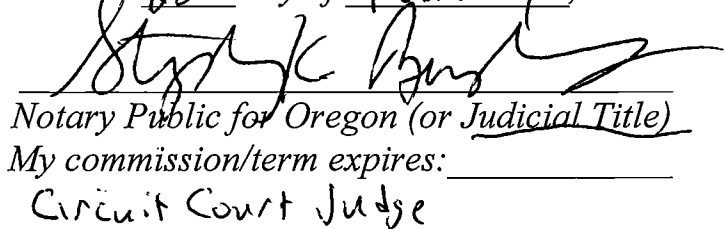 Notary Public for Oregon (or Judicial Title)
My commission/term expires:
Circuit Court Judge